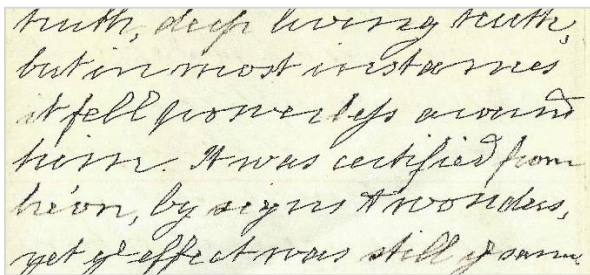 truth, deep living truth,
but in most instances
it fell powerless around
him. It was certified from
he'on, by signs & wonders,
yet ye effect was still ye same